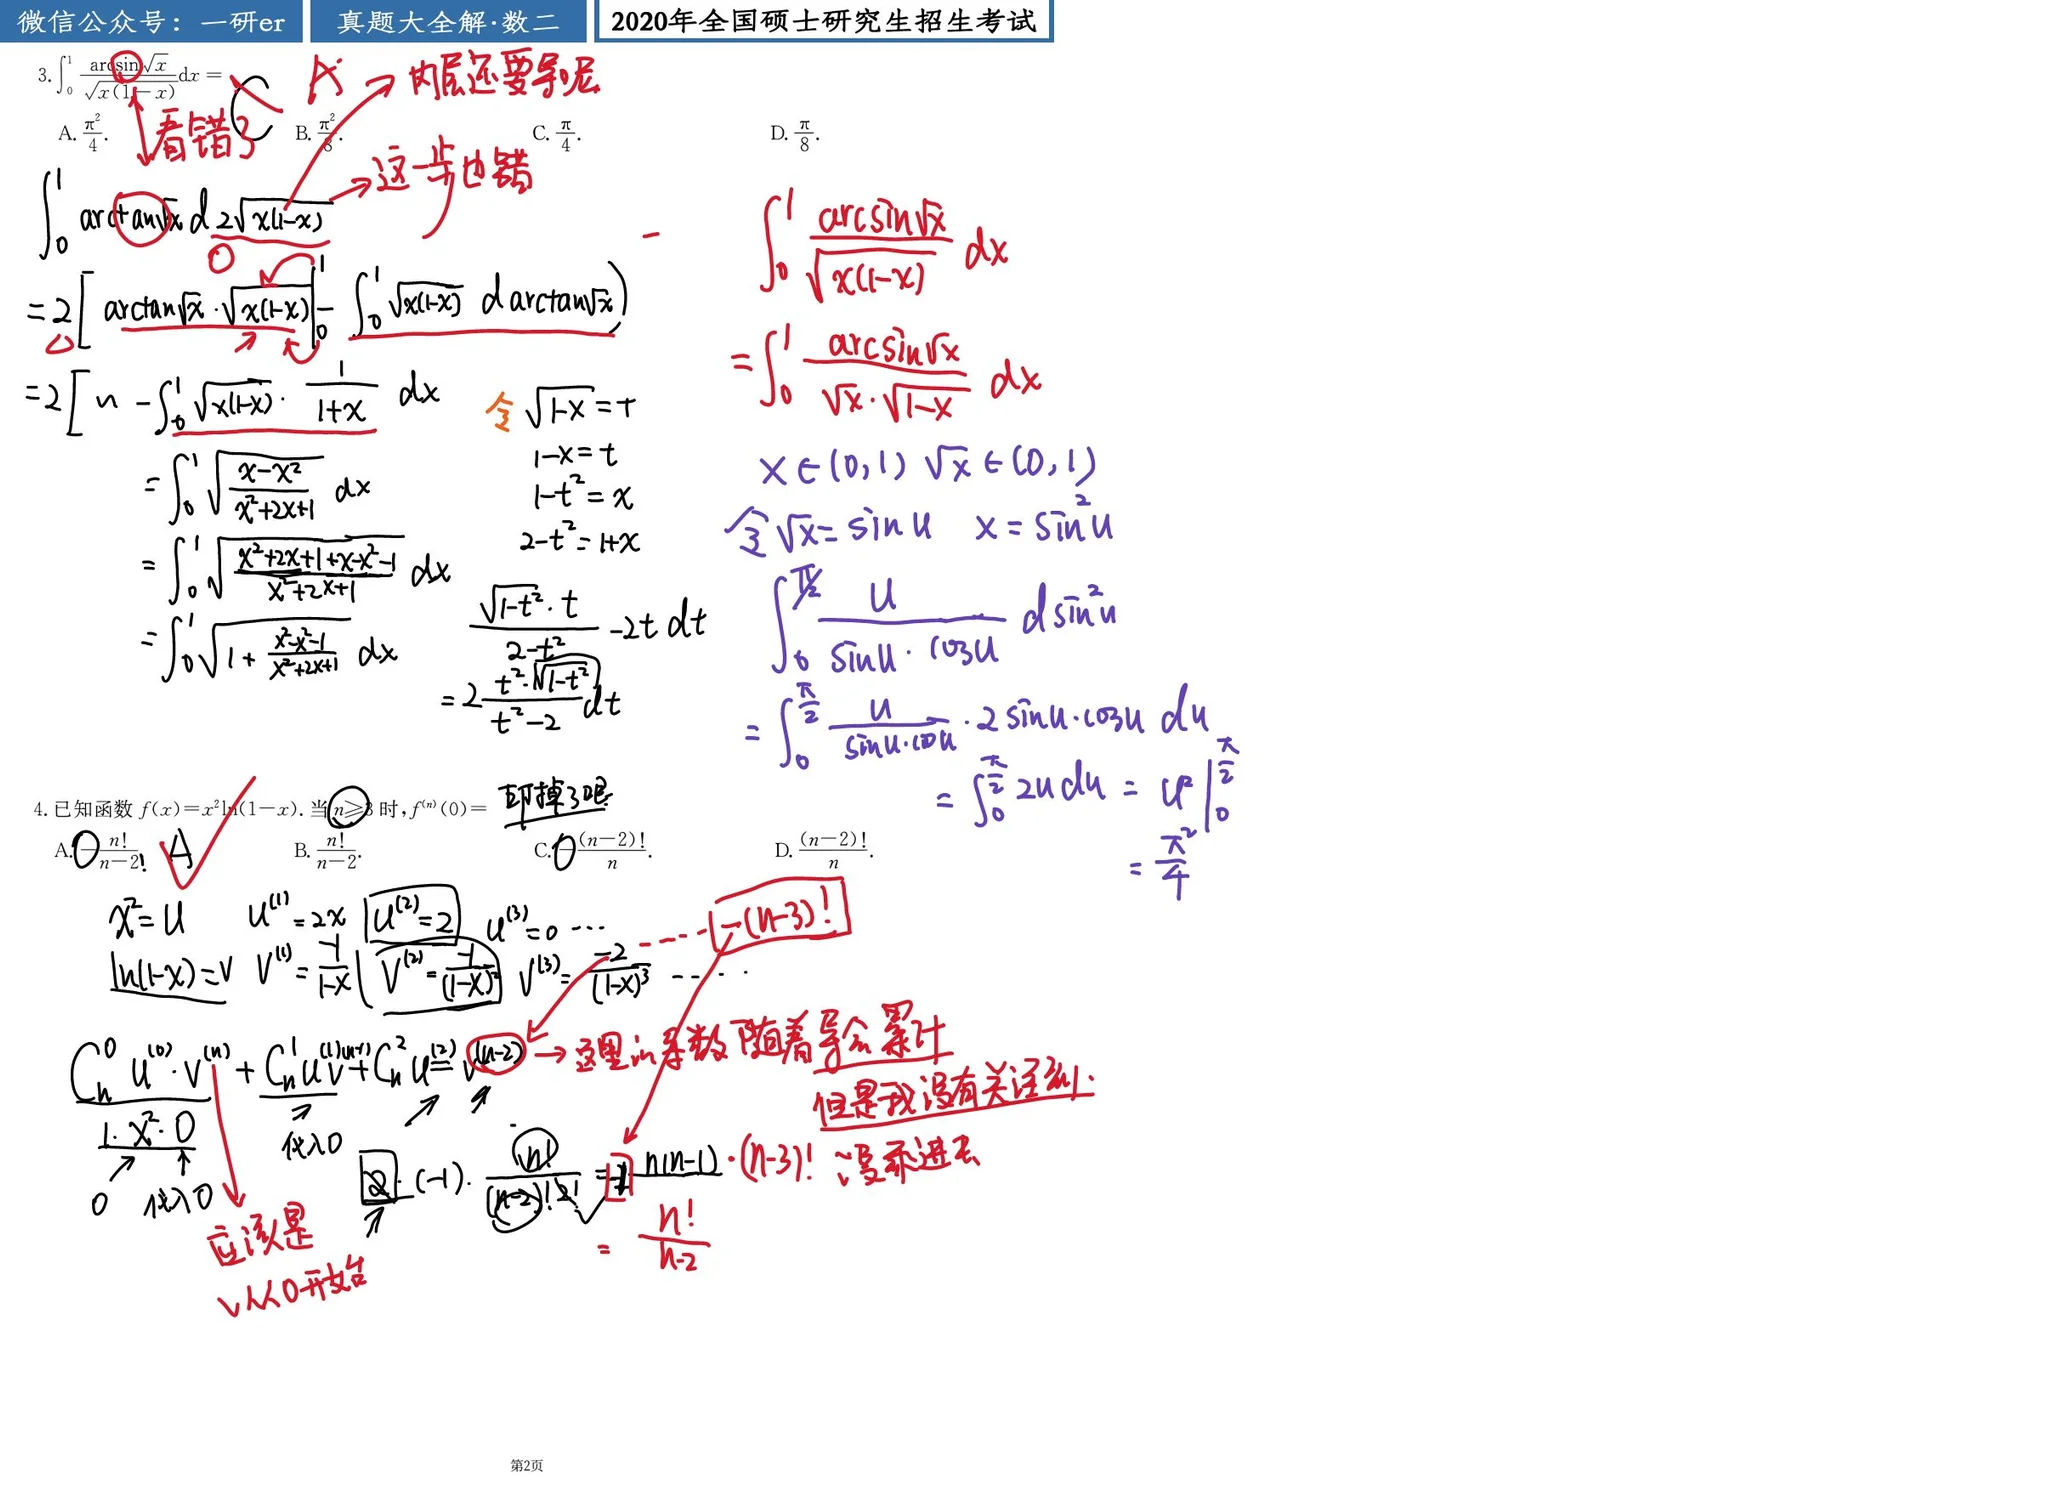 微信公众号：一研er 真题大全解·数二 2020年全国硕士研究生招生考试
3. ∫₀¹ arcsin√x / √x(1−x) dx = C A
内层还要导呢
A. π²/4. B. π²/8. C. π/4. D. π/8.
看错了
这一步也错
∫₀¹ arctan√x d 2√x(1−x)
= 2[ arctan√x · √x(1−x) |₀¹ − ∫₀¹ √x(1−x) d arctan√x )
= 2[ − ∫₀¹ √x(1−x) · 1/(1+x) dx
= ∫₀¹ √((x−x²)/(x²+2x+1)) dx
= ∫₀¹ √((x²+2x+1+x−x²−1)/(x²+2x+1)) dx
= ∫₀¹ √(1 + (x²−x²−1)/(x²+2x+1)) dx
令 √1−x = t
1−x = t
1−t² = x
2−t² = 1+x
√1−t² · t / (2−t²) −2t dt
= 2 t²·√1−t² / (t²−2) dt
∫₀¹ arcsin√x / √x(1−x) dx
= ∫₀¹ arcsin√x / (√x · √1−x) dx
x ∈ (0,1) √x ∈ (0,1)
令 √x = sin u x = sin²u
∫₀^(π/2) u / (sin u · cos u) d sin²u
= ∫₀^(π/2) u / (sin u · cos u) · 2 sin u · cos u du
= ∫₀^(π/2) 2u du = u² |₀^(π/2)
= π²/4
4. 已知函数 f(x)=x²ln(1−x). 当 n≥3 时, f⁽ⁿ⁾(0)=
印掉了吧
A. − n!/(n−2) ! A B. n!/(n−2). C. − (n−2)!/n. D. (n−2)!/n.
x² = u u⁽¹⁾ = 2x u⁽²⁾ = 2 u⁽³⁾ = 0 ···
ln(1−x) = v v⁽¹⁾ = −1/(1−x) v⁽²⁾ = −1/(1−x)² v⁽³⁾ = −2/(1−x)³ ···· −(n−3)!
Cₙ⁰ u⁽⁰⁾ · v⁽ⁿ⁾ + Cₙ¹ u⁽¹⁾ v⁽ⁿ⁻¹⁾ + Cₙ² u⁽²⁾ v⁽ⁿ⁻²⁾ → 这里的系数随着导会累计
但是我没有关注到.
1 · x² · 0 代入0
0 代入0
2 · (−1) · n!/((n−2)! 2!) = − n(n−1) · (n−3)! 没乘进去
= n!/(n−2)
应该是
从0开始
第2页